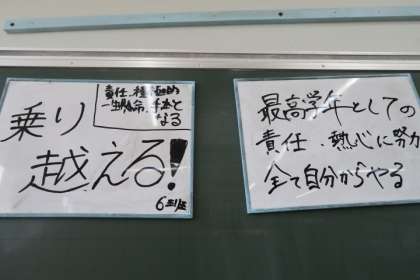 乗り
越える!
責任、積極的
一生懸命、手本と
なる
6年1組
最高学年としての
責任・熱心に努力
全て自分からやる